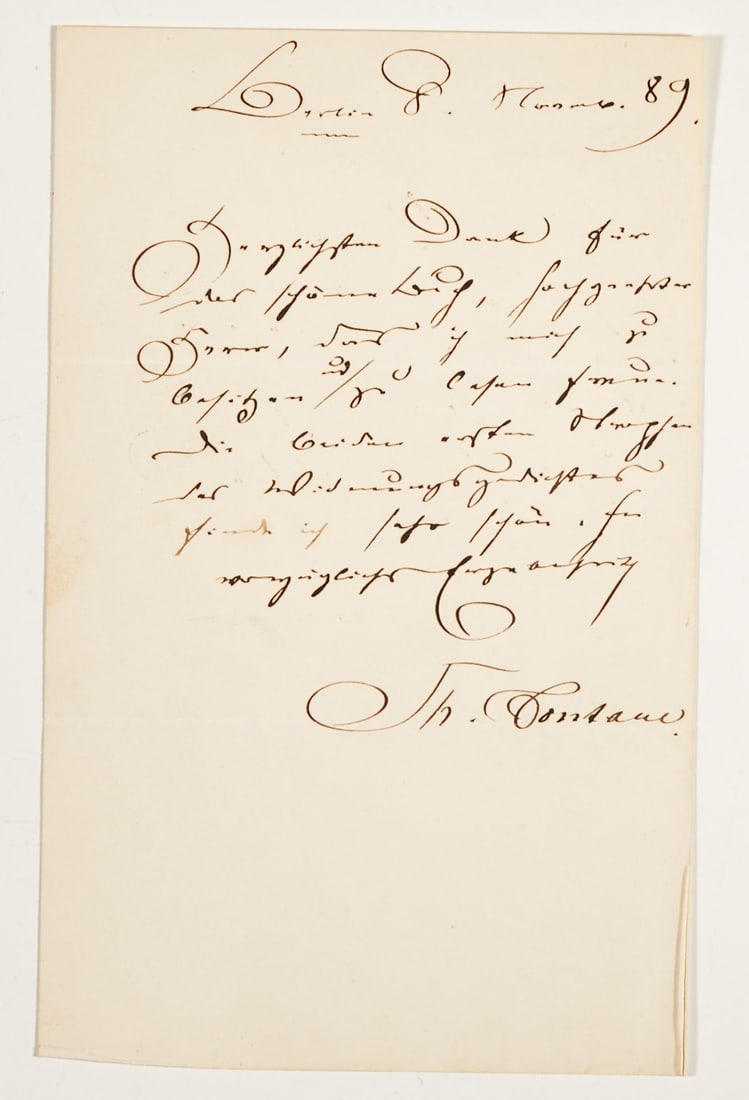 Berlin 8. Novemb. 89.
Herzlichsten Dank für
das schöne Buch, hochgeehrter
Herr, das ich mich zu
besitzen ud zu lesen freue.
Die beiden ersten Strophen
des Widmungsgedichtes
finde ich sehr schön. In
vorzüglicher Ergebenheit
Th. Fontane.